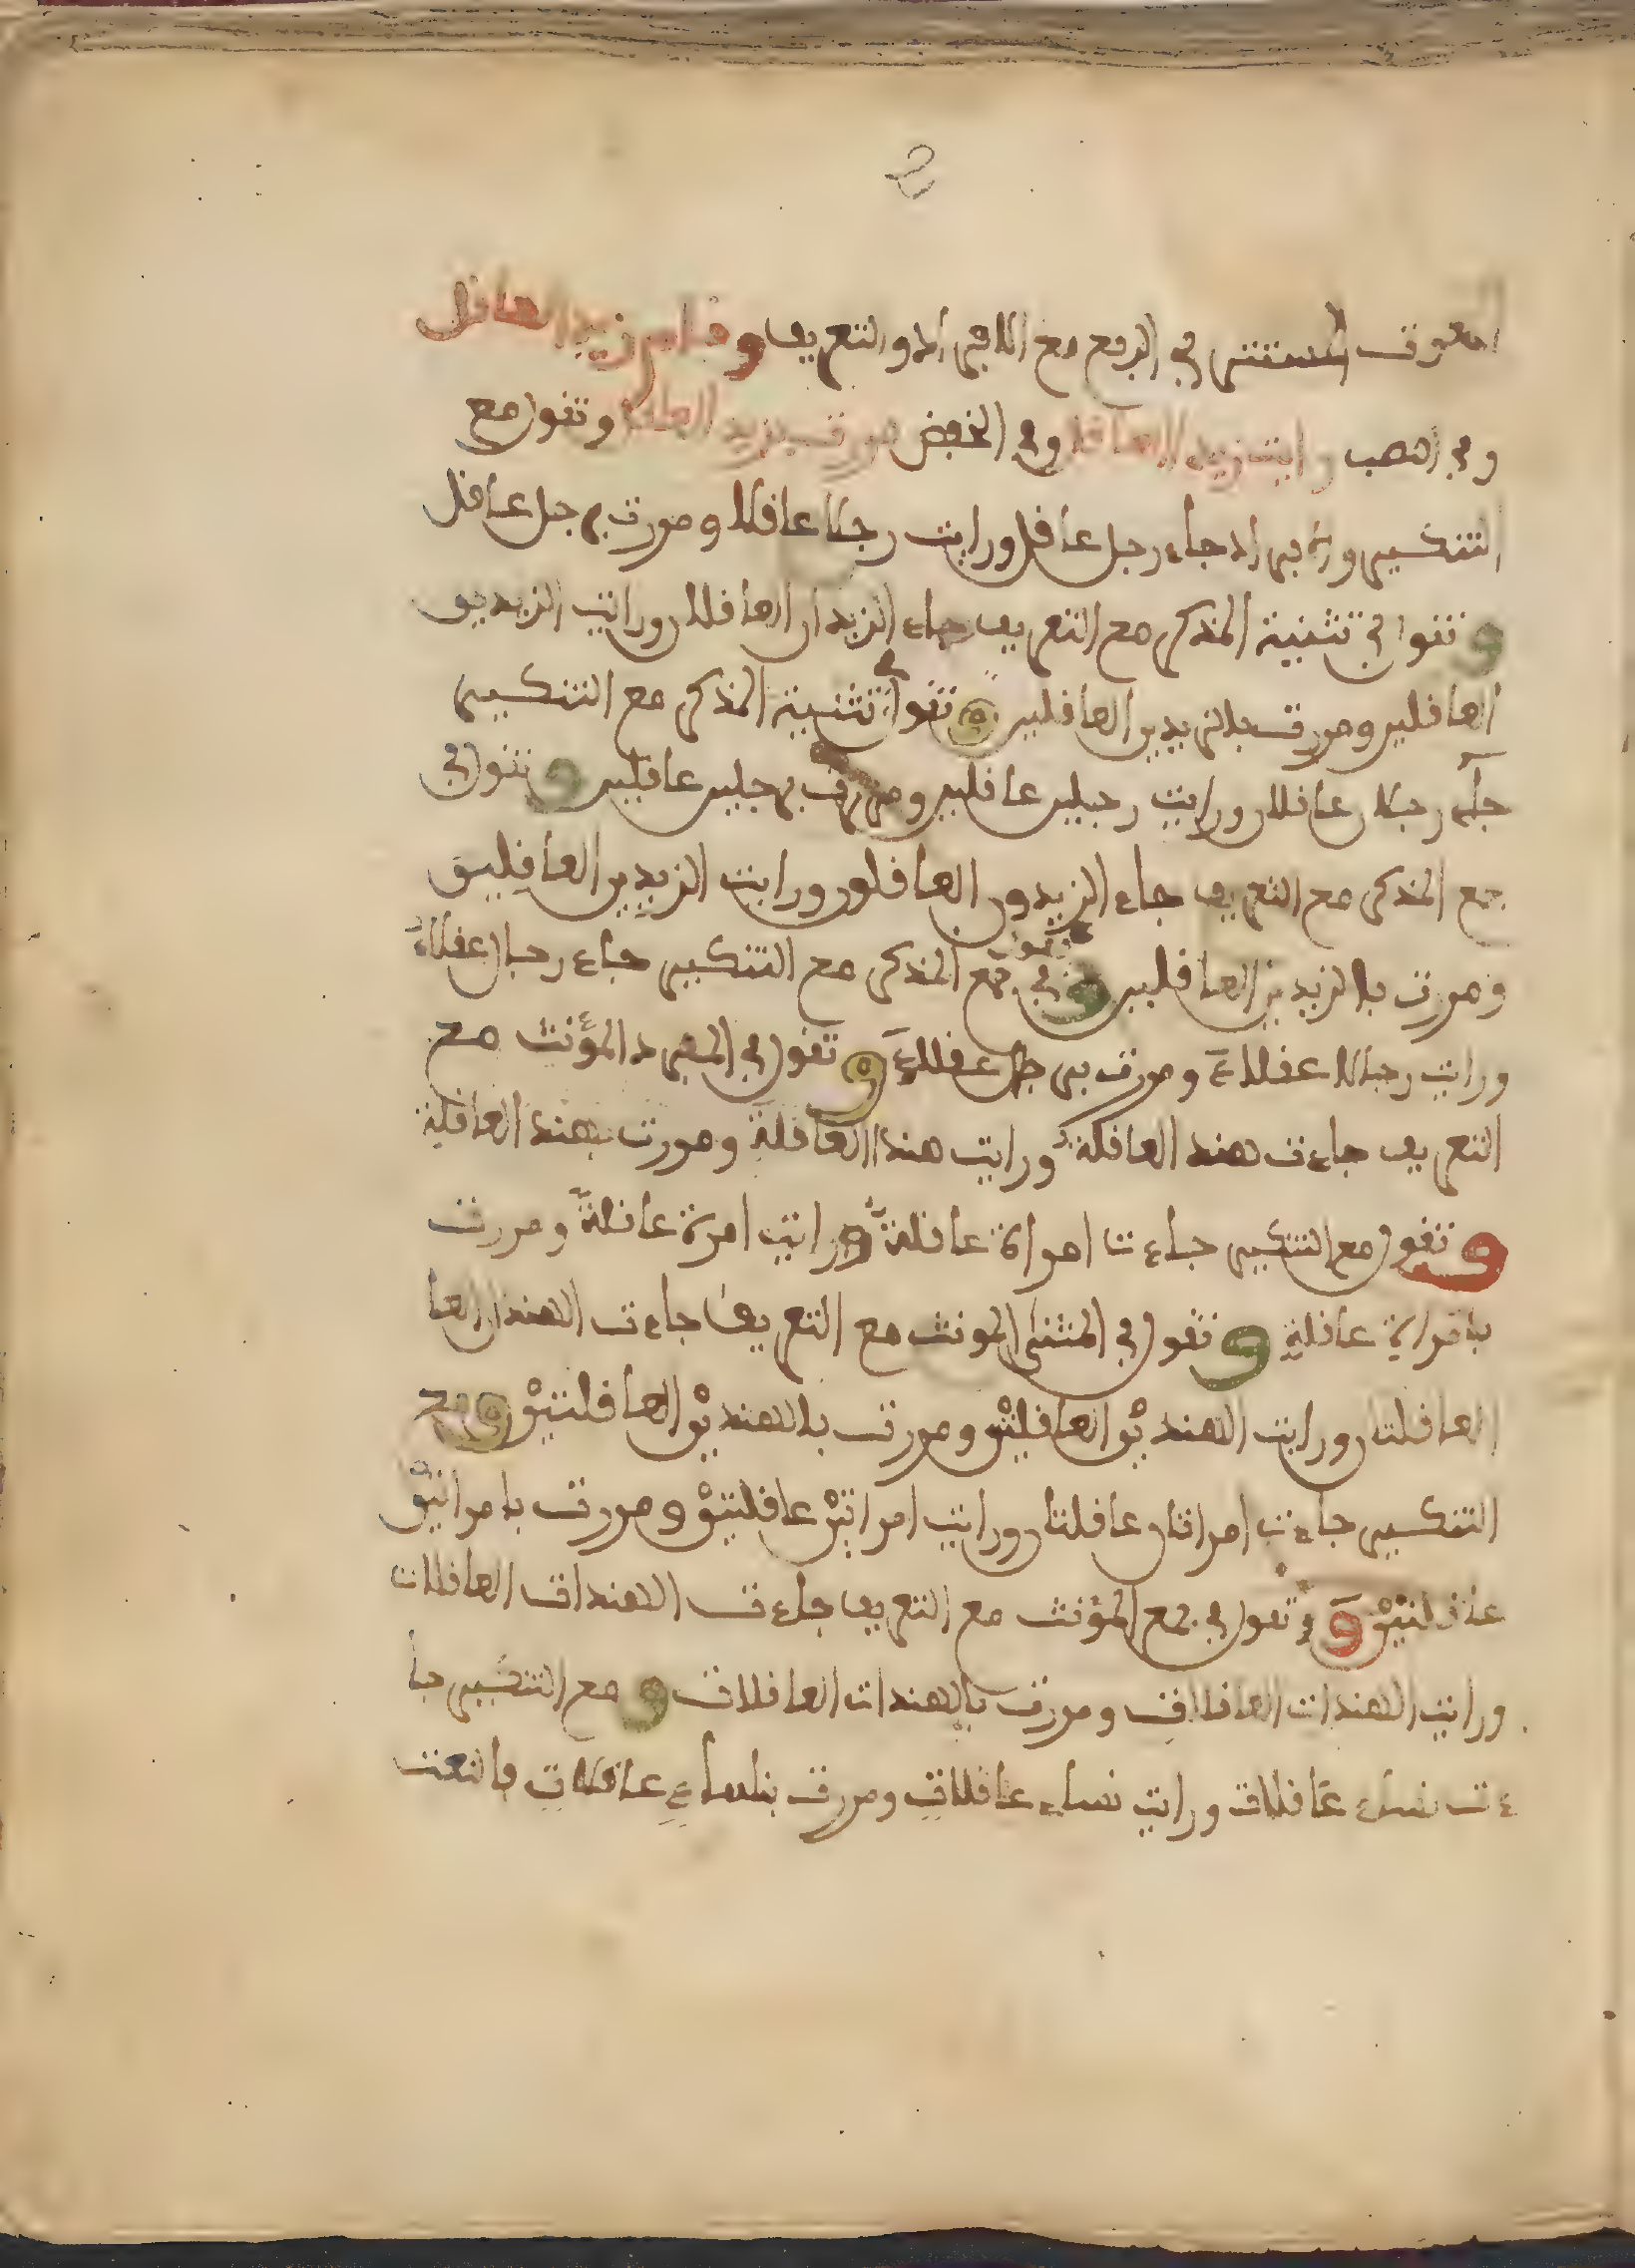 المستتر في الرفع مع الافراد والتعريف وقام زيد العاقل
وفي النصب رايت زيد العاقل وفي الخفض مررت بزيد العاقل وتقول مع
التنكير والافراد جاء رجل عاقل ورايت رجلا عاقلا ومررت برجل عاقل
وتقول في تثنية المذكر مع التعريف جاء الزيدان العاقلان ورايت الزيدين
العاقلين ومررت بالزيدين العاقلين وتقول في تثنية المذكر مع التنكير
جاء رجلان عاقلان ورايت رجلين عاقلين ومررت برجلين عاقلين وتقول في
جمع المذكر مع التعريف جاء الزيدون العاقلون ورايت الزيدين العاقلين
ومررت بالزيدين العاقلين وتقول في جمع المذكر مع التنكير جاء رجال عقلاء
ورايت رجالا عقلاء ومررت برجال عقلاء وتقول في المفرد المؤنث مع
التعريف جاءت هند العاقلة ورايت هندا العاقلة ومررت بهند العاقلة
وتقول مع التنكير جاءت امراة عاقلة ورايت امرة عاقلة ومررت
بامراة عاقلة وتقول في المثنى المونث مع التعريف جاءت الهندان العا
العاقلتان ورايت الهندين العاقلتين ومررت بالهندين العاقلتين ومع
التنكير جاءت امراتان عاقلتان ورايت امراتين عاقلتين ومررت بامراتين
عاقلتين وتقول في جمع المؤنث مع التعريف جاءت الهندات العاقلات
ورايت الهندات العاقلات ومررت بالهندات العاقلات ومع التنكير جا
ءت نساء عاقلات ورايت نساء عاقلات ومررت بنساء عاقلات فالنعت